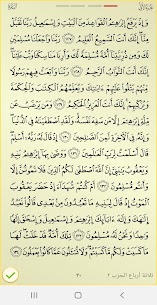 البقرة
وَإِذْ يَرْفَعُ إِبْرَٰهِـۧمُ ٱلْقَوَاعِدَ مِنَ ٱلْبَيْتِ وَإِسْمَٰعِيلُ رَبَّنَا تَقَبَّلْ مِنَّآ
إِنَّكَ أَنتَ ٱلسَّمِيعُ ٱلْعَلِيمُ ١٢٧ رَبَّنَا وَٱجْعَلْنَا مُسْلِمَيْنِ لَكَ
وَمِن ذُرِّيَّتِنَآ أُمَّةً مُّسْلِمَةً لَّكَ وَأَرِنَا مَنَاسِكَنَا وَتُبْ عَلَيْنَآ
إِنَّكَ أَنتَ ٱلتَّوَّابُ ٱلرَّحِيمُ ١٢٨ رَبَّنَا وَٱبْعَثْ فِيهِمْ رَسُولًا
مِّنْهُمْ يَتْلُوا۟ عَلَيْهِمْ ءَايَٰتِكَ وَيُعَلِّمُهُمُ ٱلْكِتَٰبَ وَٱلْحِكْمَةَ
وَيُزَكِّيهِمْ إِنَّكَ أَنتَ ٱلْعَزِيزُ ٱلْحَكِيمُ ١٢٩ وَمَن يَرْغَبُ عَن
مِّلَّةِ إِبْرَٰهِـۧمَ إِلَّا مَن سَفِهَ نَفْسَهُۥ وَلَقَدِ ٱصْطَفَيْنَٰهُ فِى ٱلدُّنْيَا
وَإِنَّهُۥ فِى ٱلْءَاخِرَةِ لَمِنَ ٱلصَّٰلِحِينَ ١٣٠ إِذْ قَالَ لَهُۥ رَبُّهُۥٓ أَسْلِمْ
قَالَ أَسْلَمْتُ لِرَبِّ ٱلْعَٰلَمِينَ ١٣١ وَوَصَّىٰ بِهَآ إِبْرَٰهِـۧمُ بَنِيهِ
وَيَعْقُوبُ يَٰبَنِىَّ إِنَّ ٱللَّهَ ٱصْطَفَىٰ لَكُمُ ٱلدِّينَ فَلَا تَمُوتُنَّ
إِلَّا وَأَنتُم مُّسْلِمُونَ ١٣٢ أَمْ كُنتُمْ شُهَدَآءَ إِذْ حَضَرَ يَعْقُوبَ
ٱلْمَوْتُ إِذْ قَالَ لِبَنِيهِ مَا تَعْبُدُونَ مِنۢ بَعْدِى قَالُوا۟ نَعْبُدُ
إِلَٰهَكَ وَإِلَٰهَ ءَابَآئِكَ إِبْرَٰهِـۧمَ وَإِسْمَٰعِيلَ وَإِسْحَٰقَ إِلَٰهًا وَٰحِدًا
وَنَحْنُ لَهُۥ مُسْلِمُونَ ١٣٣ تِلْكَ أُمَّةٌ قَدْ خَلَتْ لَهَا مَا
كَسَبَتْ وَلَكُم مَّا كَسَبْتُمْ وَلَا تُسْـَٔلُونَ عَمَّا كَانُوا۟ يَعْمَلُونَ ١٣٤
ثلاثة أرباع الحزب ٢
٢٠